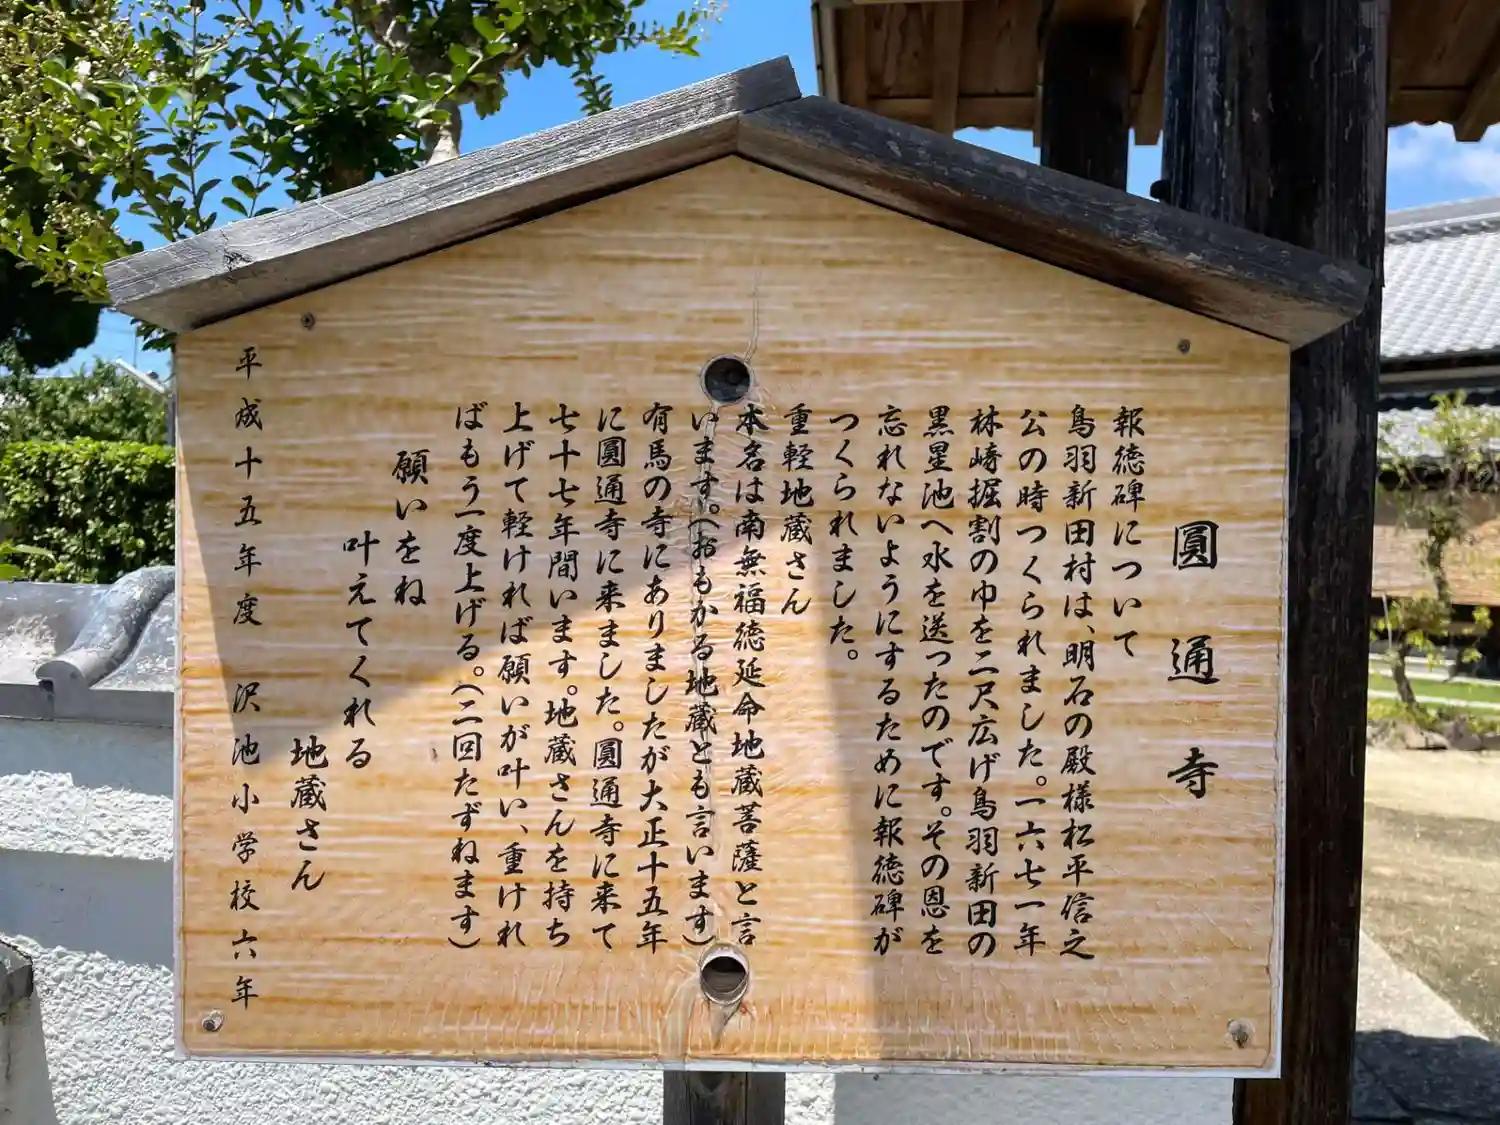 圓通寺
報徳碑について
鳥羽新田村は、明石の殿様松平信之
公の時つくられました。一六七一年
林崎掘割の巾を二尺広げ鳥羽新田の
黒星池へ水を送ったのです。その恩を
忘れないようにするために報徳碑が
つくられました。
重軽地蔵さん
本名は南無福徳延命地蔵菩薩と言
います。(おもかる地蔵とも言います)
有馬の寺にありましたが大正十五年
に圓通寺に来ました。圓通寺に来て
七十七年間います。地蔵さんを持ち
上げて軽ければ願いが叶い、重けれ
ばもう一度上げる。(二回たずねます)
願いをね
叶えてくれる
地蔵さん
平成十五年度 沢池小学校六年